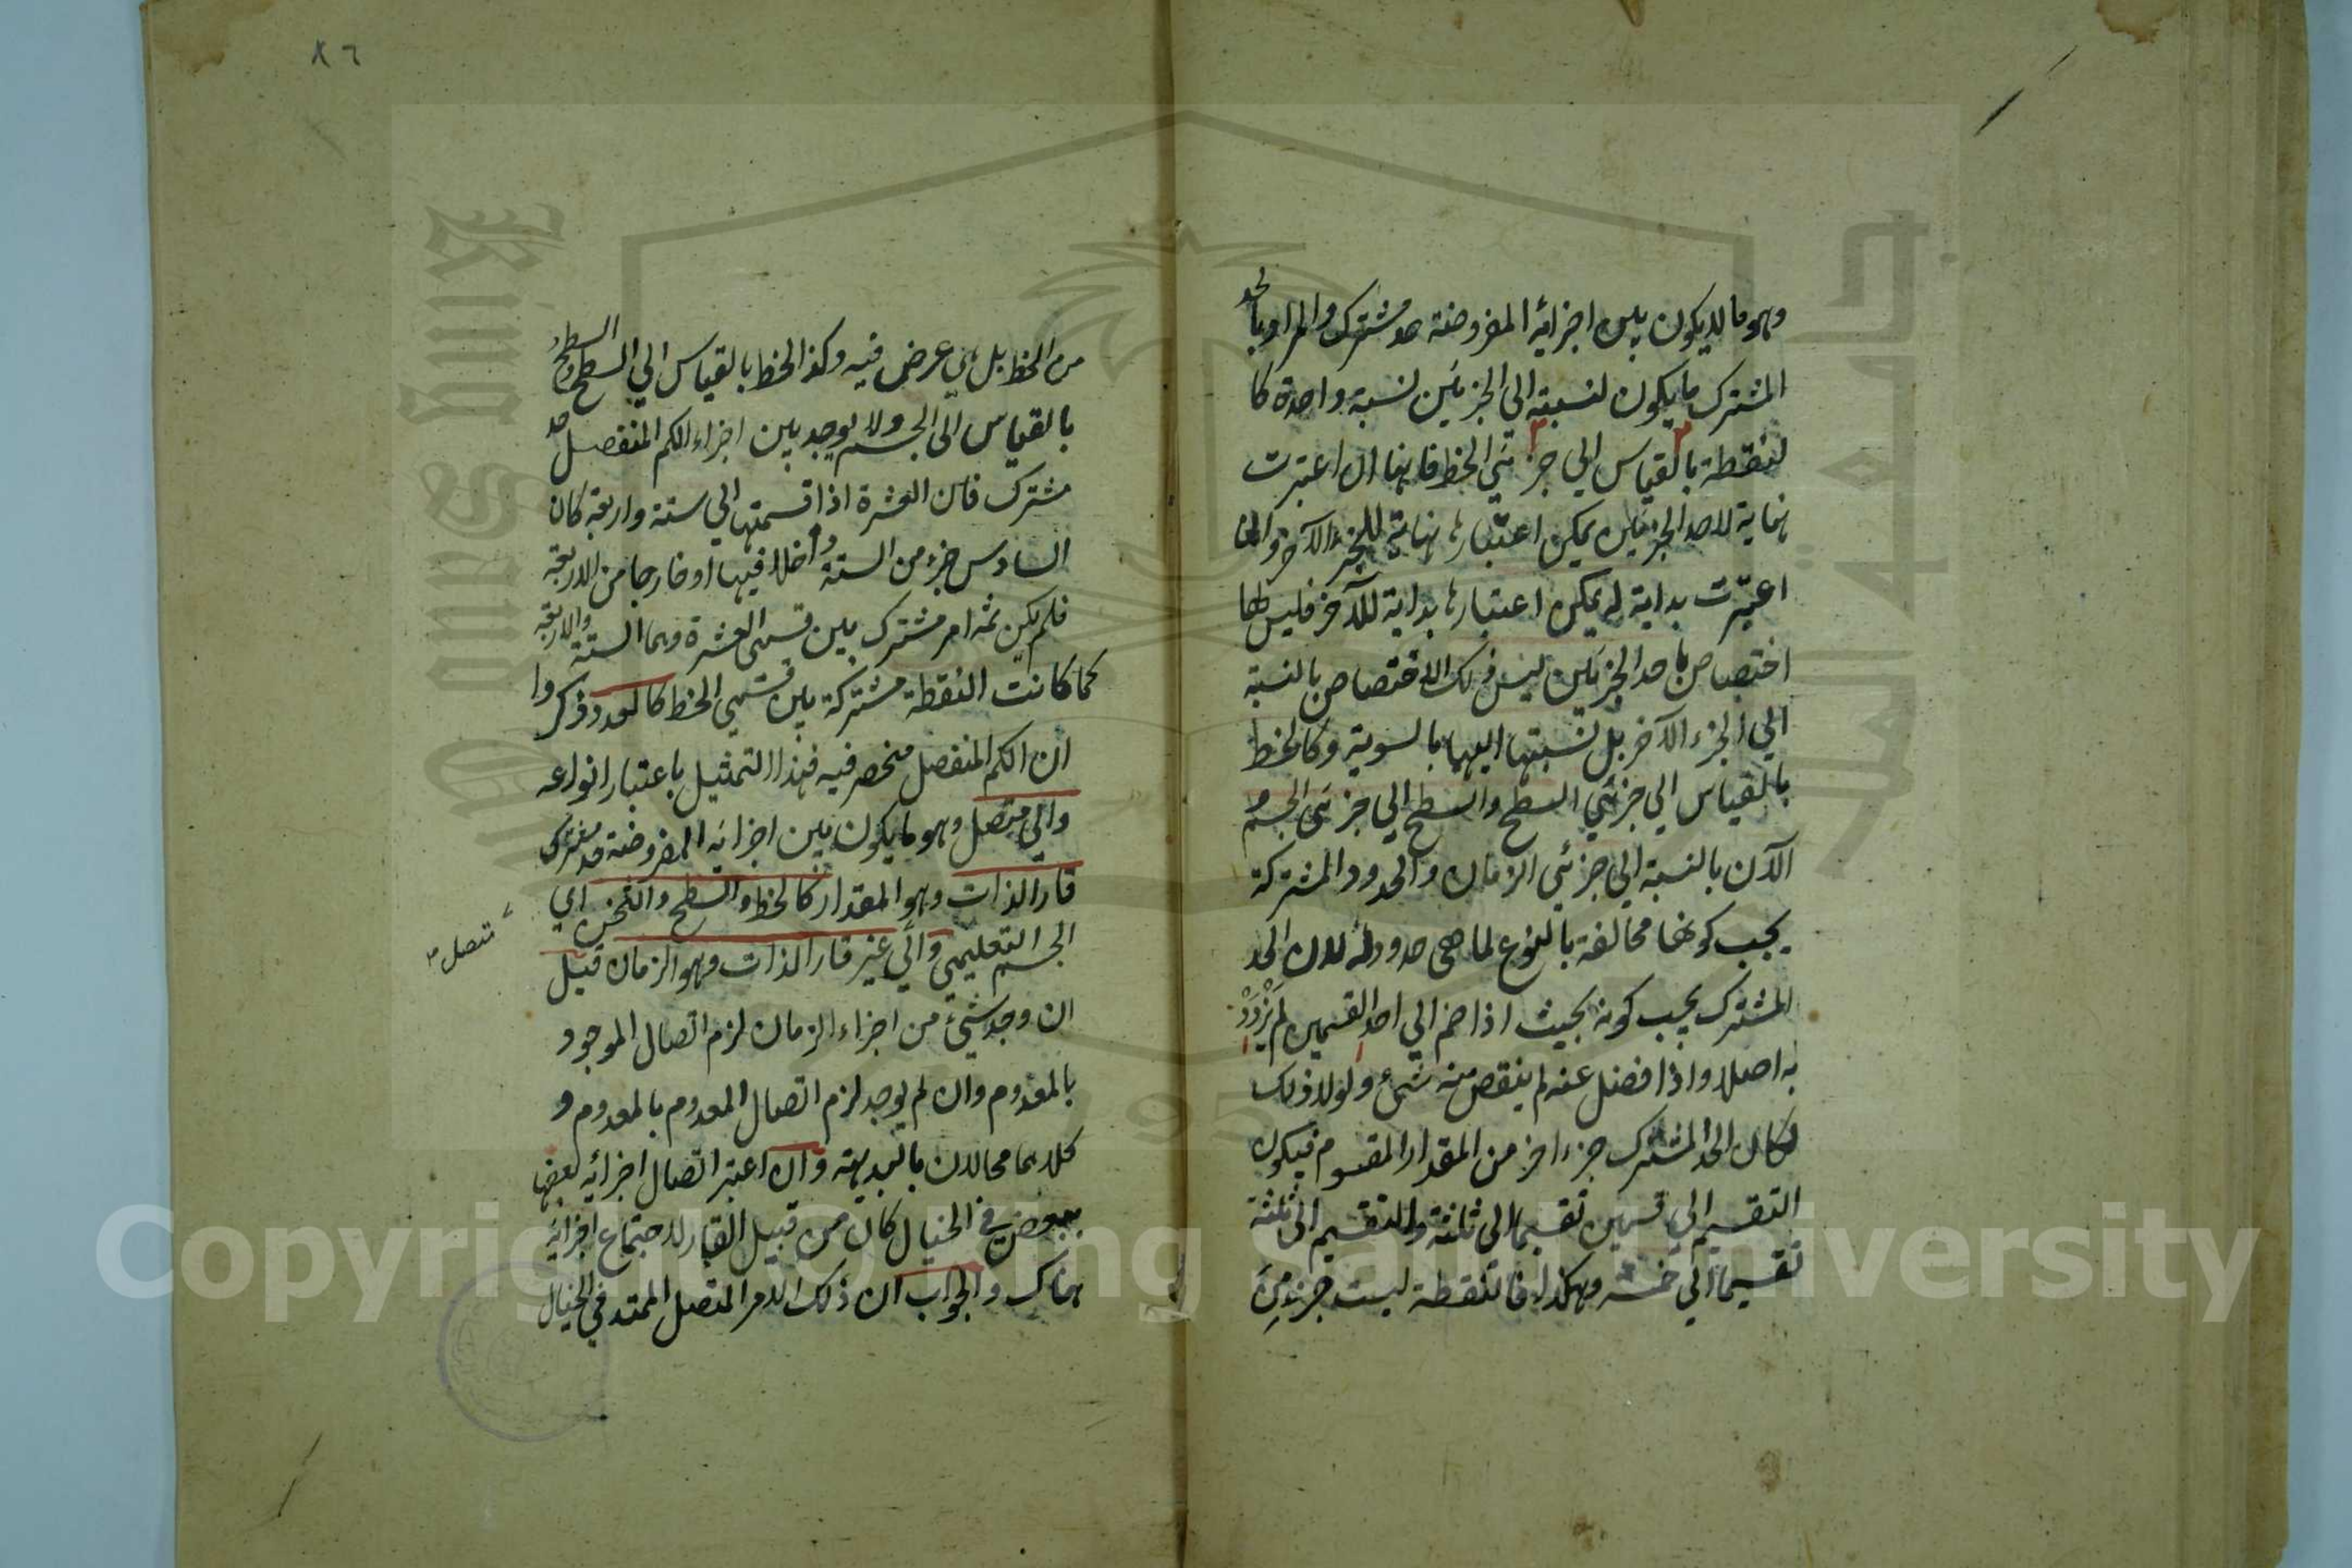 وهو ما لا يكون بين اجزائه المفروضة حد مشترك والمراد بالحد
المشترك ما يكون نسبته الى الجزئين نسبة واحدة كا
لنقطة بالقياس الى جزئي الخط فانها ان اعتبرت
نهاية لاحد الجزئين يمكن اعتبارها نهاية للجزء الآخر وانها
اعتبرت بداية له يمكن اعتبارها بداية للآخر فليس لها
اختصاص باحد الجزئين ليس ذلك الاختصاص بالنسبة
الي الجزء الآخر بل نسبتها اليهما بالسوية وكالخط
بالقياس الي جزئي السطح والسطح الي جزئي الجسم و
الآن بالنسبة الي جزئي الزمان والحدود المشتركة
يجب كونها مخالفة بالنوع لما هي حدود له لان الحد
المشترك يجب كونه بحيث اذا ضم الي احد القسمين لم يزدد
به اصلا واذا فضل عنه لم ينقص منه شئ ولولا ذلك
لكان الحد المشترك جزء اخر من المقدار المقسوم فيكون
التقسيم الي قسمين تقسيما الى ثلثة والتقسيم الى ثلثة
تقسيما الي خمسة وهكذا فالنقطة ليست جزء من
٨٦
من الخط بل هي عرض فيه وكذ الخط بالقياس الي السطح والسطح
بالقياس الى الجسم ولا يوجد بين اجزاء الكم المنفصل حد
مشترك فان العشرة اذا قسمتها الي ستة واربعة كان
السادس جزء من الستة داخلا فيها او خارجا من الاربعة
فلم يكن ثمه امر مشترك بين قسمي العشرة وهما الستة والاربعة
كما كانت النقطة مشتركة بين قسمي الخط كالعدد وذكروا
ان الكم المنفصل منحصر فيه فهذا التمثيل باعتبار انواعه
والي متصل وهو ما يكون بين اجزائه المفروضة حد مشترك
قار الذات وهو المقدار كالخط والسطح والثخن اي
الجسم التعليمي والي غير قار الذات وهو الزمان قيل
متصل
ان وجد شئ من اجزاء الزمان لزم اتصال الموجود
بالمعدوم وان لم يوجد لزم اتصال المعدوم بالمعدوم و
كلاهما محالان بالبديهة وان اعتبر اتصال اجزائه بعضها
ببعض في الخيال كان من قبيل القار لاجتماع اجزائه
هناك والجواب ان ذلك الامر المتصل الممتد في الخيال
Copyright © King Saud University